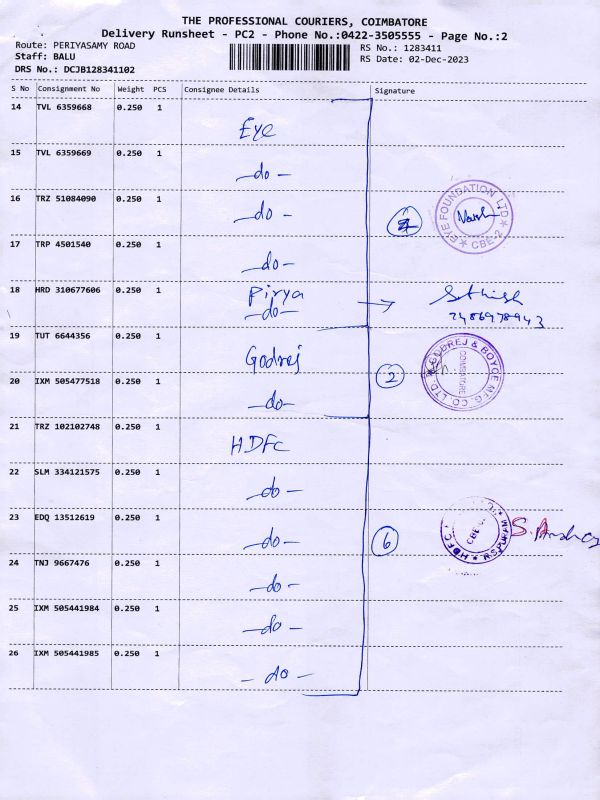 THE PROFESSIONAL COURIERS, COIMBATORE
Delivery Runsheet - PC2 - Phone No.:0422-3505555 - Page No.:2
Route: PERIYASAMY ROAD
RS No.: 1283411
Staff: BALU
RS Date: 02-Dec-2023
DRS No.: DCJB128341102
S No Consignment No Weight PCS Consignee Details Signature
14 TVL 6359668 0.250 1 Eye
15 TVL 6359669 0.250 1 -do-
16 TRZ 51084090 0.250 1 -do-
EYE FOUNDATION LTD CBE-2
17 TRP 4501540 0.250 1 -do-
18 HRD 310677606 0.250 1 Pirya
-do- → Sathish
2486978943
19 TUT 6644356 0.250 1 Godrej
GODREJ & BOYCE MFG. CO. LTD. COIMBATORE
20 IXM 505477518 0.250 1 -do- 2
21 TRZ 102102748 0.250 1 HDFC
22 SLM 334121575 0.250 1 -do-
23 EDQ 13512619 0.250 1 -do- 6
HDFC CBE R.S.PURAM
24 TNJ 9667476 0.250 1 -do-
25 IXM 505441984 0.250 1 -do-
26 IXM 505441985 0.250 1 -do-